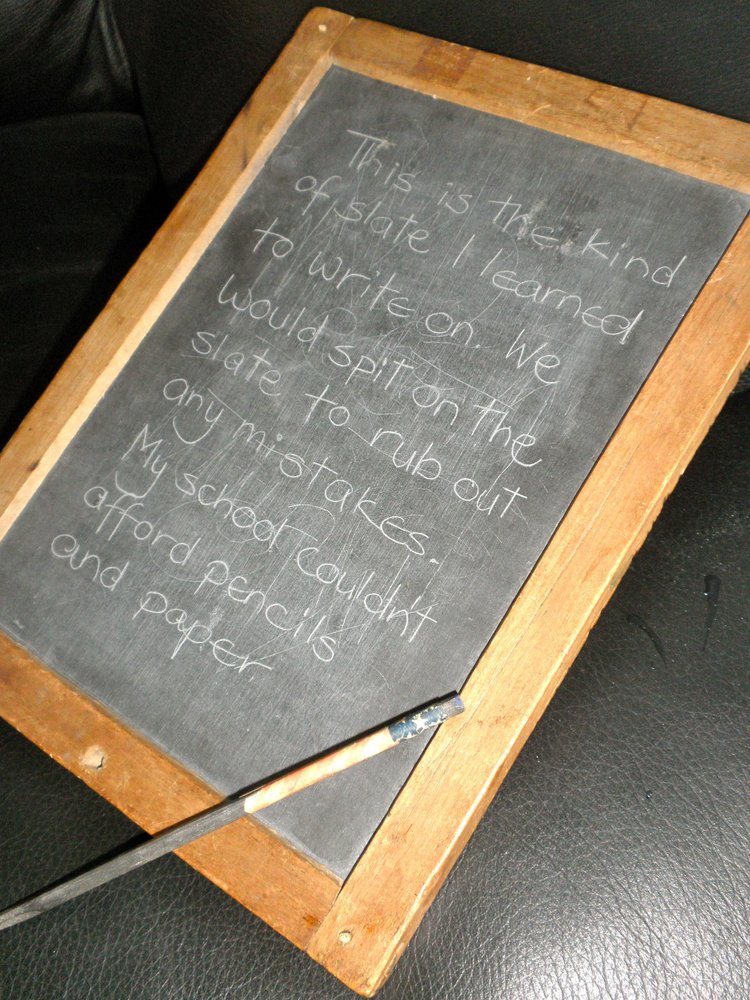 This is the kind
of slate I learned
to write on. We
would spit on the
slate to rub out
any mistakes.
My school couldn't
afford pencils
and paper